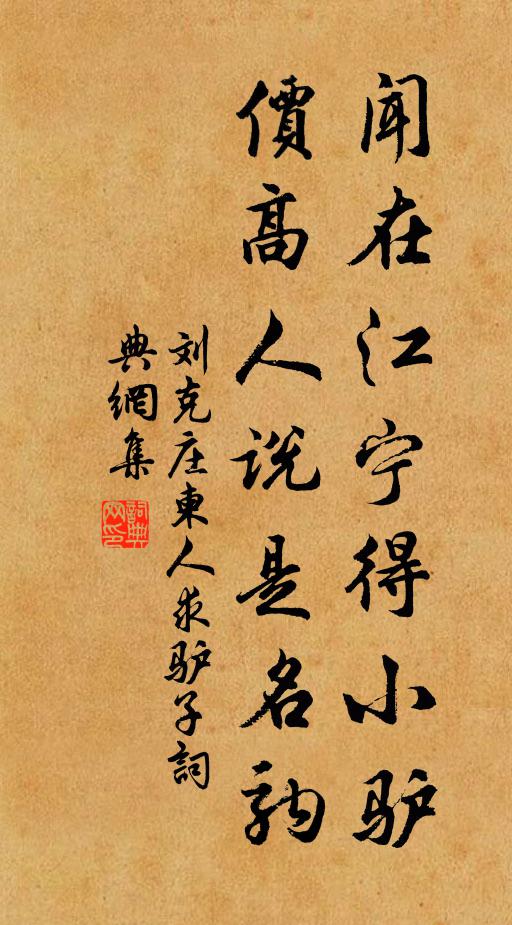 闻在江宁得小驴
價高人说是名駒
刘克庄東人求驴子詞
典網集
詞典
网印